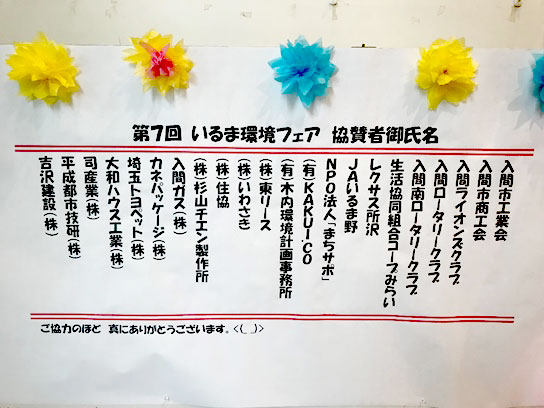 第7回 いるま環境フェア 協賛者御氏名
入間市工業会
入間市商工会
入間ライオンズクラブ
入間ロータリークラブ
入間南ロータリークラブ
生活協同組合コープみらい
レクサス所沢
JAいるま野
NPO法人「まちサポ」
(有)KAKUI.CO
(有)木内環境計画事務所
(株)東リース
(株)いわさき
(株)住協
(株)杉山チエン製作所
入間ガス(株)
カネパッケージ(株)
埼玉トヨペット(株)
大和ハウス工業(株)
司産業(株)
平成都市技研(株)
吉沢建設(株)
ご協力のほど 真にありがとうございます。<(_ _)>